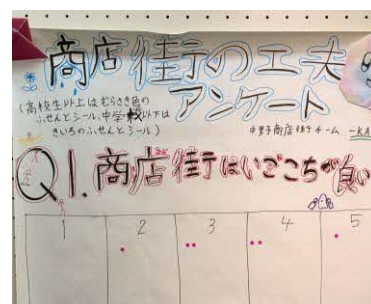 商店街の工夫
アンケート
(高校生以上はむらさき色の
ふせんとシール、中学校以下は
きいろのふせんとシール)
中野商店街チーム -KA
Q1.商店街はいごこちが良い
1 2 3 4 5